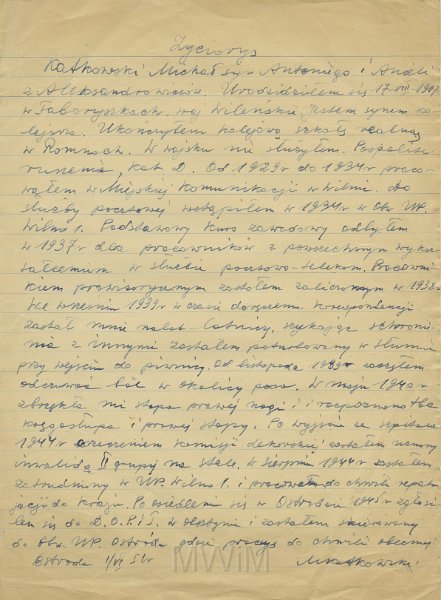 Życiorys
Ratkowski Michał syn Antoniego i Anieli
z Aleksandrowiczów. Urodziłem się 17 VIII 1907
w Taboryszkach, woj Wileńskie Jestem synem ko-
lejarza. Ukończyłem kolejową szkołę realną
w Romnach. W wojsku nie służyłem. Pospolite
ruszenie, kat D. Od 1929 r do 1934 r praco-
wałem w Miejskiej Komunikacji w Wilnie. do
służby pocztowej wstąpiłem w 1934 r w Obw. UP.
Wilno 1. Podstawowy kurs zawodowy odbyłem
w 1937 r dla pracowników z powszechnym wyk-
ształceniem w służbie pocztowo-telekom. Pracowni-
kiem prowizorycznym zostałem zaliczonym w 1938
We wrześniu 1939 r w czasie doręczenia korespondencji
zastał mnie nalot lotniczy, szukając schronie-
nia z innymi zostałem poturbowany w tłumie
przy wejściu do piwnicy. Od listopada 1939 r zacząłem
odczuwać ból w okolicy pasa. W maju 1940 r
zbrzękła mi stopa prawej nogi i rozpoznano tbc
kręgosłupa i prawej stopy. Po wyjściu ze szpitala
1944 r orzeczeniem komisji lekarskiej zostałem uznany
inwalidą II grupy na stałe. w sierpniu 1944 r zostałem
zatrudniony w UP. Wilno 1. i pracowałem do chwili repatr-
jacji do kraju. Po osiedleniu się w Ostródzie 1945 r zgłosi-
łem się do D.O.P.i T. w Olsztynie i zostałem skierowany
do Obw. UP. Ostróda gdzie pracuję do chwili obecnej
Ostróda 1/VI 51 r MRatkowski
MWiM